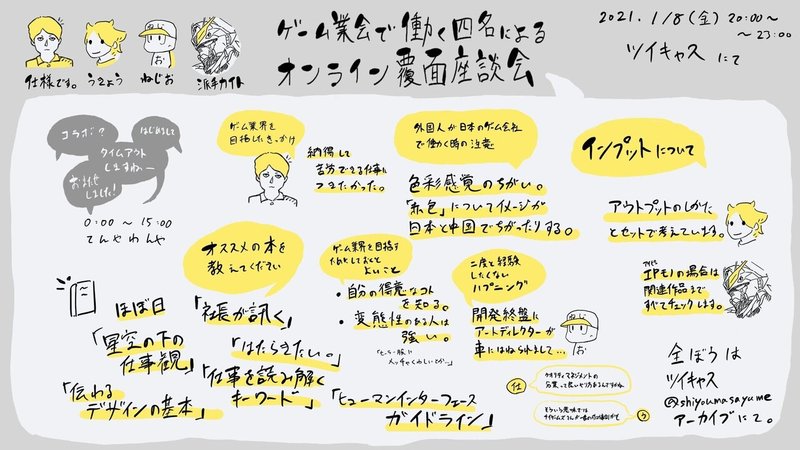 ゲーム業会で働く四名による
オンライン覆面座談会
2021.1/8(金)20:00〜
〜23:00
ツイキャスにて
仕様です。
うさょう
ねじお
お
派手カイト
コラボ??
はじめまして
タイムアウト
しますねー
おまたせ
しました!
0:00〜15:00
てんやわんや
ゲーム業界を
目指したきっかけ
納得して
苦労できる仕事に
つきたかった。
外国人が日本のゲーム会社
で働く時の注意
色彩感覚のちがい。
「赤色」についてイメージが
日本と中国でちがったりする。
インプットについて
アウトプットのしかた
とセットで考えています。
IPモノの場合は
関連作品まで
すべてチェックします。
オススメの本を
教えてください
ほぼ日
「星空の下の
仕事観」
「伝わる
デザインの基本」
「社長が訊く」
「はたらきたい。」
「仕事を読み解く
キーワード」
「ヒューマンインターフェース
ガイドライン」
ゲーム業界を目指す
ためにしておくと
よいこと
・自分の得意なコト
を知る。
・変態性のある人は
強い。
二度と経験
したくない
ハプニング
開発終盤に
アートディレクターが
車にはねられまして…
お
仕
クオリティマネジメントの
う
全ぼうは
ツイキャス
@shiyoumasayume
アーカイブにて。